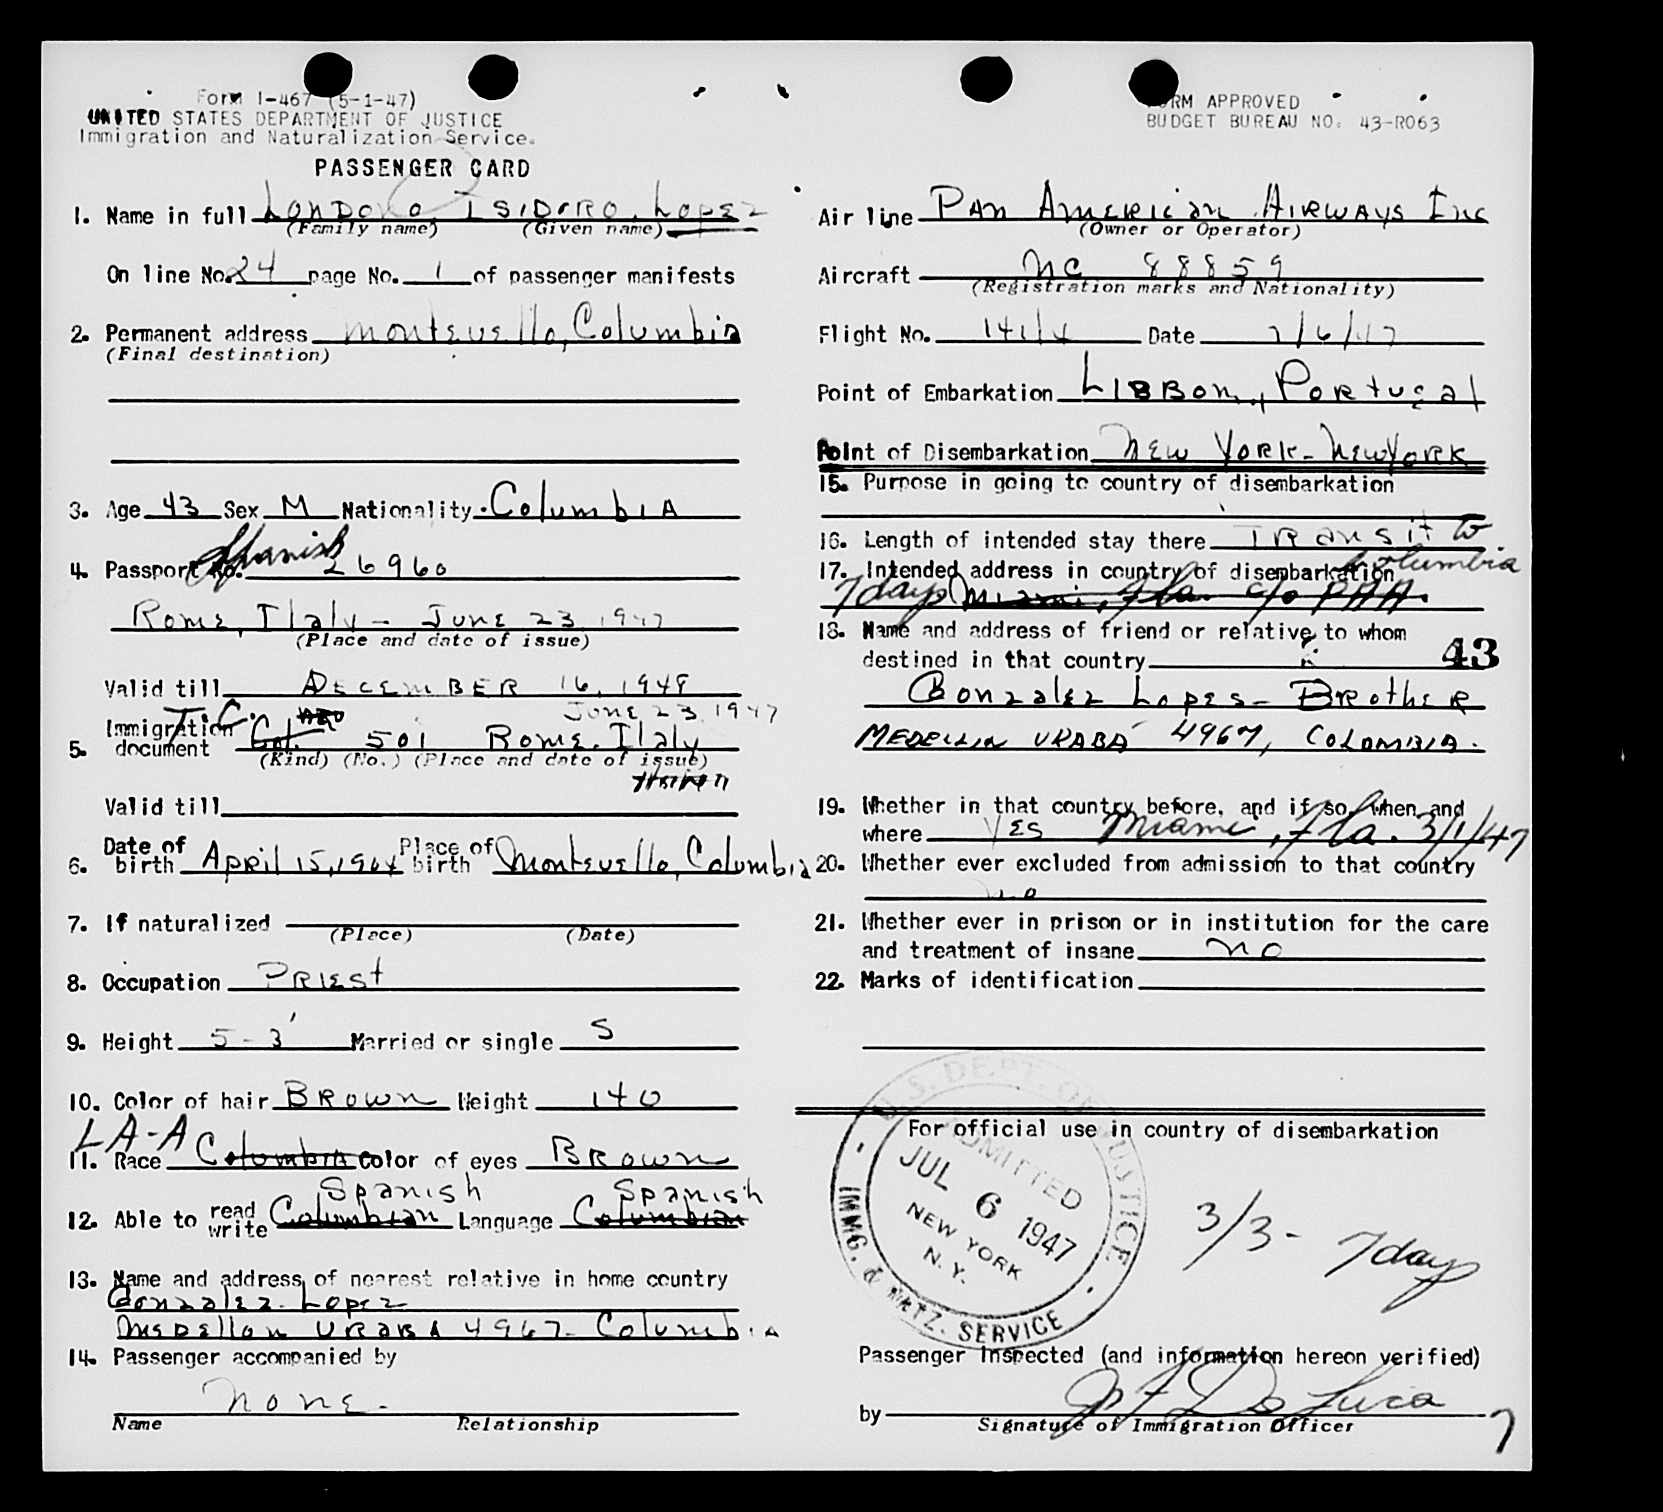 Form I-467 (5-1-47)
UNITED STATES DEPARTMENT OF JUSTICE
Immigration and Naturalization Service.
PASSENGER CARD
1. Name in full LONDONO, ISIDRO, LOPEZ
(Family name) (Given name)
On line No. 24 page No. 1 of passenger manifests
2. Permanent address Montevello, Columbia
(Final destination)
3. Age 43 Sex M Nationality Columbia
Spanish
4. Passport No. 26960
Rome, Italy - June 23, 1947
(Place and date of issue)
Valid till DECEMBER 16, 1949
T.C. June 23, 1947
5. Immigration document 501 Rome, Italy
(Kind) (No.) (Place and date of issue)
Valid till
6. Date of birth April 15, 1904 Place of birth Montevello, Columbia
7. If naturalized
(Place) (Date)
8. Occupation PRIEST
9. Height 5-3' Married or single S
10. Color of hair BROWN Weight 140
LA-A
11. Race Columbia Color of eyes BROWN
Spanish Spanish
12. Able to read write Columbian Language Columbian
13. Name and address of nearest relative in home country
Gonzalez Lopez
Medellon URABA 4967 - Columbia
14. Passenger accompanied by
None -
Name Relationship
FORM APPROVED
BUDGET BUREAU NO. 43-R063
Air line Pan American Airways Inc
(Owner or Operator)
Aircraft NC 88859
(Registration marks and Nationality)
Flight No. 141/4 Date 7/6/47
Point of Embarkation LISBON, Portugal
Point of Disembarkation New York - New York
15. Purpose in going to country of disembarkation
16. Length of intended stay there Transit to
Columbia
17. Intended address in country of disembarkation
7 days Miami, Fla. c/o PAA.
18. Name and address of friend or relative to whom
destined in that country 43
Gonzalez Lopes - Brother
MEDELLIN URABÁ 4967, COLOMBIA.
19. Whether in that country before, and if so, when and
where Yes Miami, Fla. 3/1/47
20. Whether ever excluded from admission to that country
no
21. Whether ever in prison or in institution for the care
and treatment of insane no
22. Marks of identification
For official use in country of disembarkation
U.S. DEPT. OF JUSTICE
ADMITTED
JUL 6 1947
NEW YORK
N. Y.
IMMG. & NATZ. SERVICE
3/3 - 7 days
Passenger Inspected (and information hereon verified)
by De Luca
Signature of Immigration Officer
7